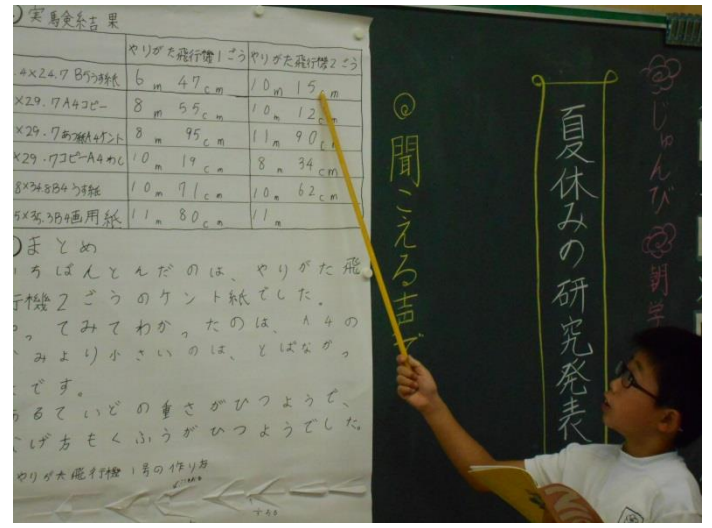 実験結果
やりがた飛行機1ごう やりがた飛行機2ごう
.4×24.7 B5うす紙 6m 47cm 10m 15cm
×29.7 A4コピー 8m 55cm 10m 12cm
×29.7あつ紙A4ケント 8m 95cm 11m 90cm
×29.7コピーA4わし 10m 19cm 8m 34cm
8×34.8B4うす紙 10m 71cm 10m 62cm
5×35.3B4画用紙 11m 80cm 11m
まとめ
ちばんとんだのは、やりがた飛
行機2ごうのケント紙でした。
ってみてわかったのは、A4の
みより小さいのは、とばなかっ
です。
あるていどの重さがひつようで、
げ方もくふうがひつようでした。
やりがた飛行機1号の作り方
◎聞こえる声で
夏休みの研究発表
じゅんび
朝学